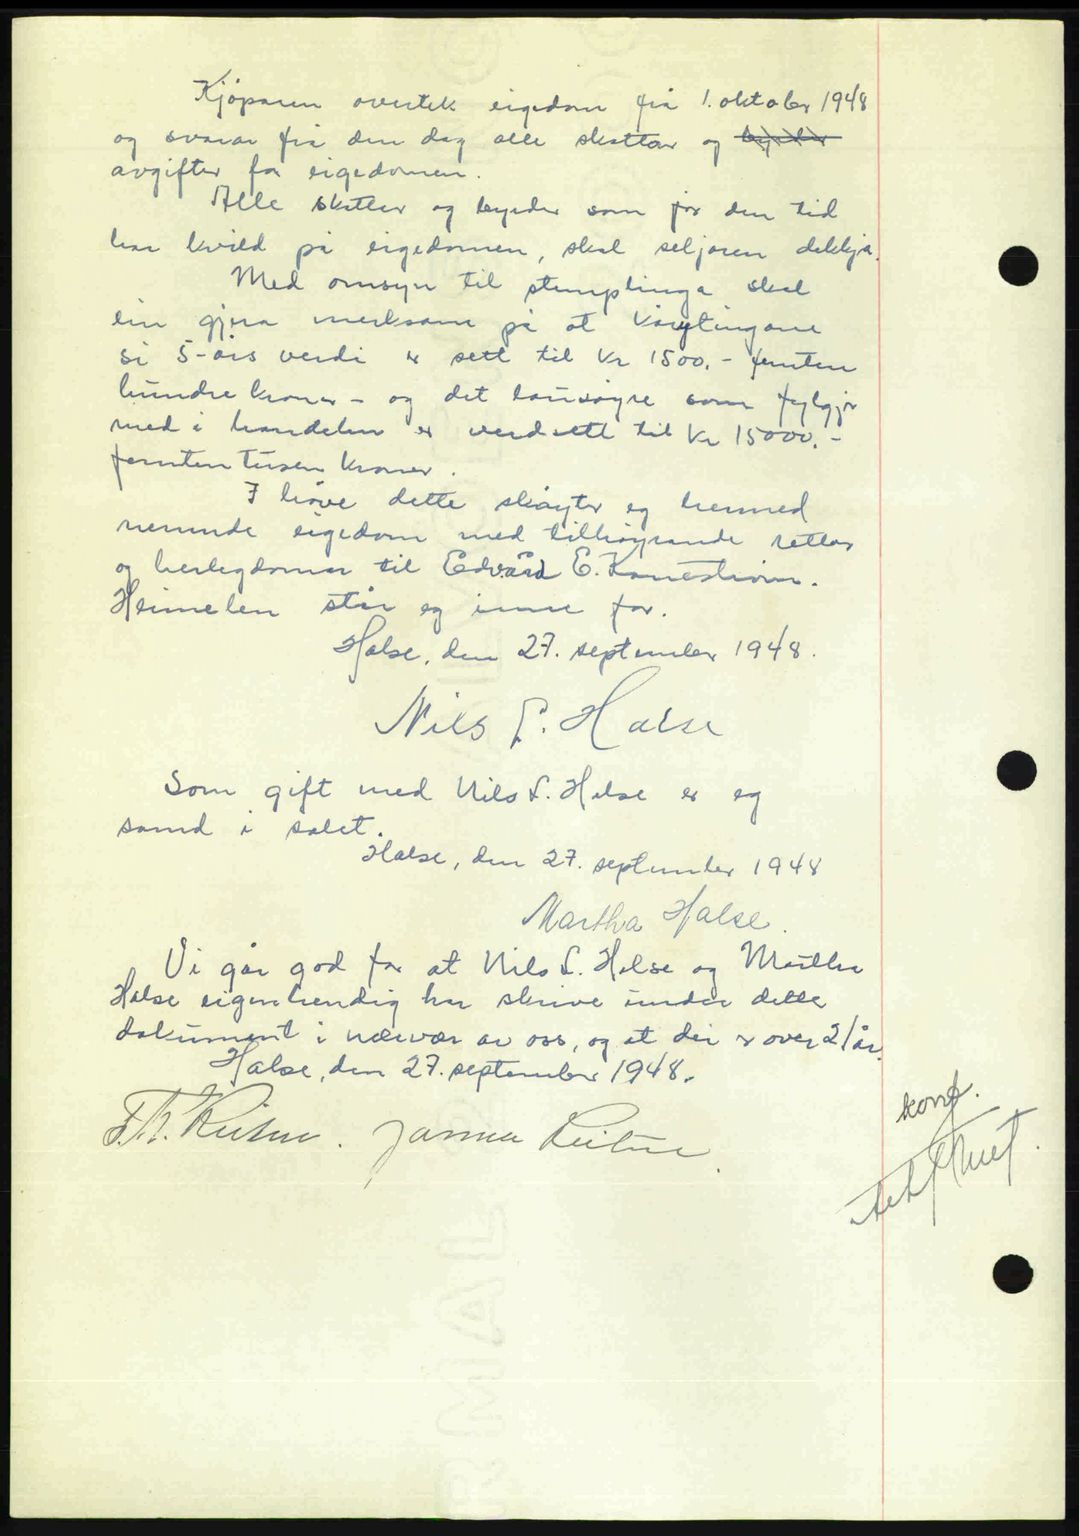 Kjöparen overtek eigedom frå 1. oktober 1948
og svarar frå den dag alle skattar og
avgifter for eigedomen.
Alle skatter og byrder som för den tid
har kvild på eigedomen, skal seljaren dekkja.
Med omsyn til stemplinga skal
ein gjera merksam på at
si 5-års verdi er sett til kr 1500.- femten
hundre kroner - og det lausöyre som fylgjer
med i handelen er verdsett til kr 15000.-
femten tusen kroner.
I höve dette sköyter eg hermed
nemnde eigedom med tilhöyrande rettar
og herlegdomar til Edvard E.
Heimelen står eg inne for.
Halse, den 27. september 1948.
Nils L. Halse
Som gift med Nils L. Halse er eg
samd i salet.
Halse, den 27. september 1948
Martha Halse.
Vi går god for at Nils L. Halse og Martha
Halse eigenhendig har skrive under dette
dokument i nærvær av oss, og at dei er over 21 år.
Halse, den 27. september 1948.